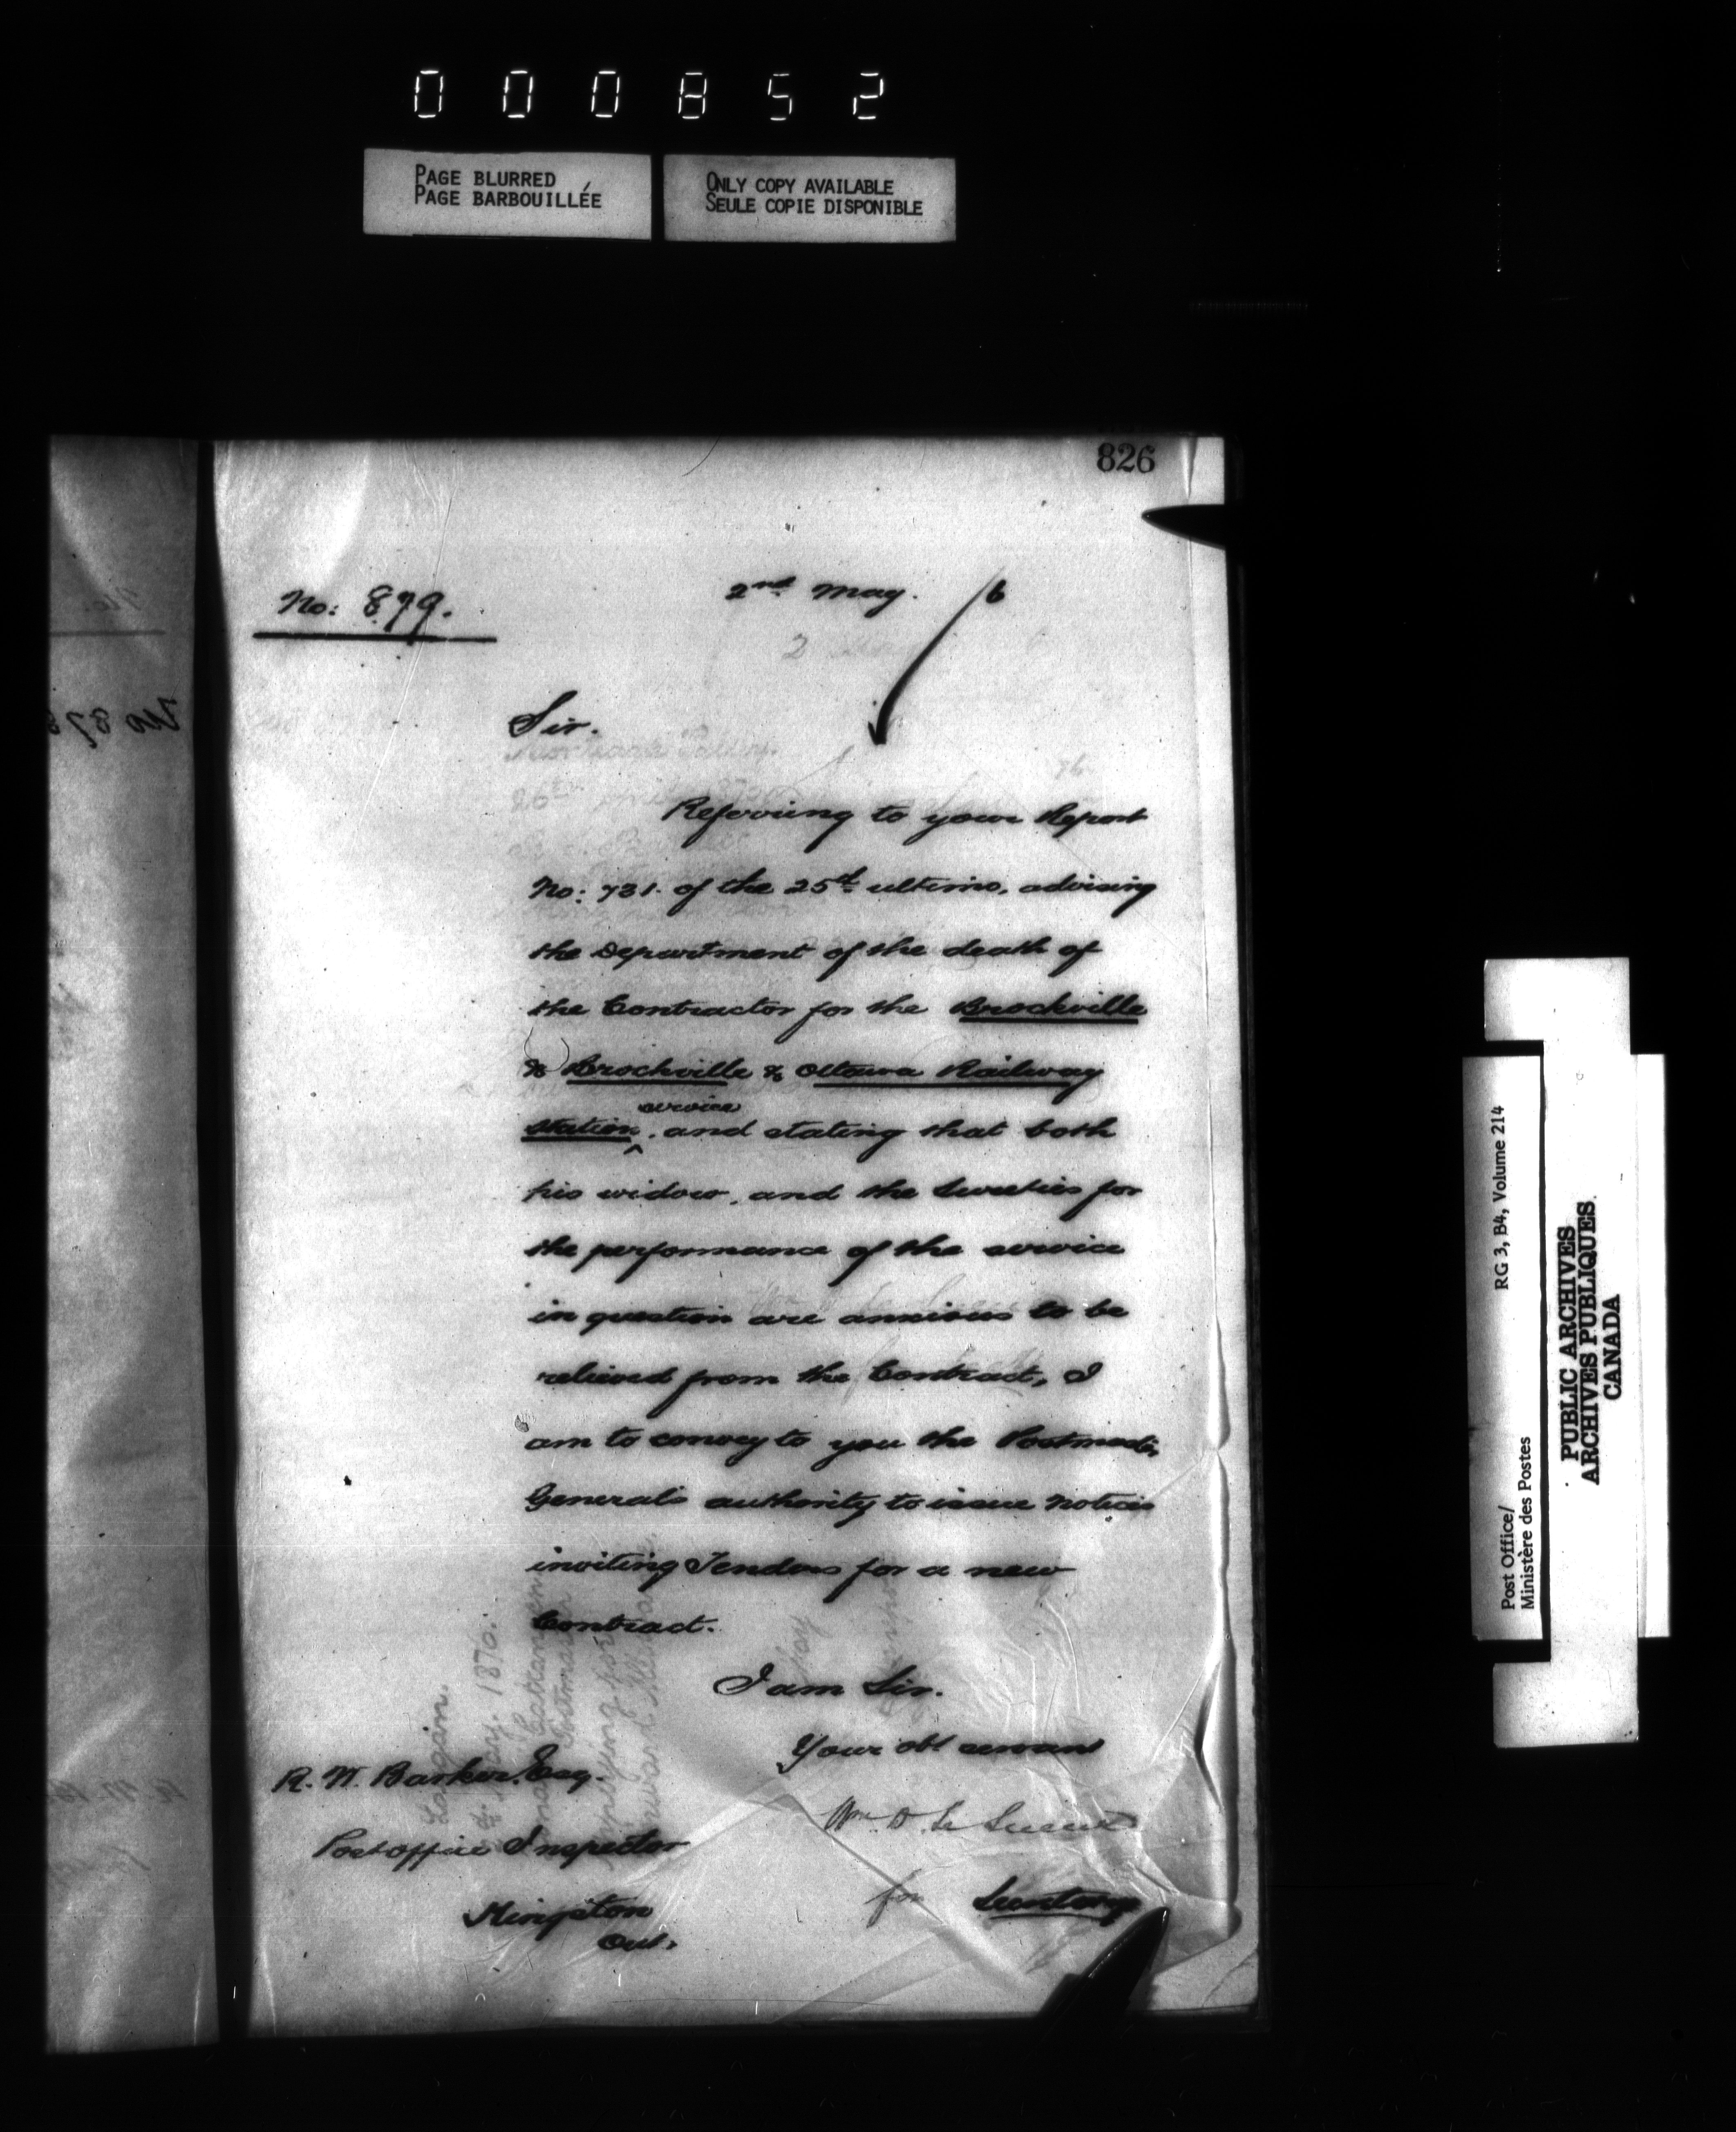 000852
PAGE BLURRED
PAGE BARBOUILLÉE
ONLY COPY AVAILABLE
SEULE COPIE DISPONIBLE
826
No: 879.
2nd May. 6
Sir.
Referring to your Report
No: 731. of the 25th ultimo, advising
the Department of the death of
the Contractor for the Brockville
& Brockville & Ottawa Railway
Station service, and stating that both
his widow, and the Sureties for
the performance of the service
in question are anxious to be
relieved from the Contract, I
am to convey to you the Postmaster
General's authority to issue Notices
inviting Tenders for a new
Contract.
I am Sir.
Your obt servant
Wm D. Le Sueur
for Secretary
R. W. Barker, Esq.
Post office Inspector
Kingston
Ont.
Post Office/
Ministère des Postes
RG 3, B4, Volume 214
PUBLIC ARCHIVES
ARCHIVES PUBLIQUES
CANADA